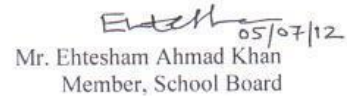 05/07/12
Mr. Ehtesham Ahmad Khan
Member, School Board